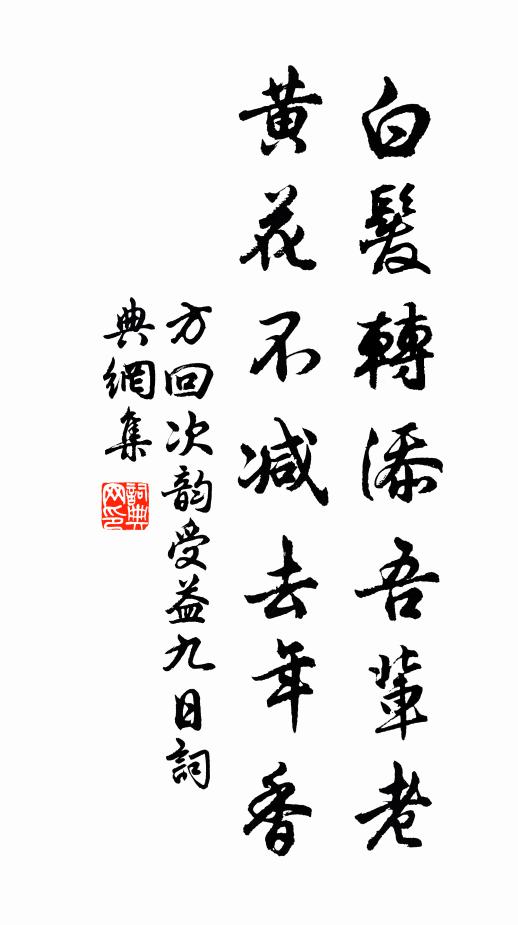 白髮轉添吾輩老
黄花不減去年香
方回次韵受益九日詞
典網集
詞典网印